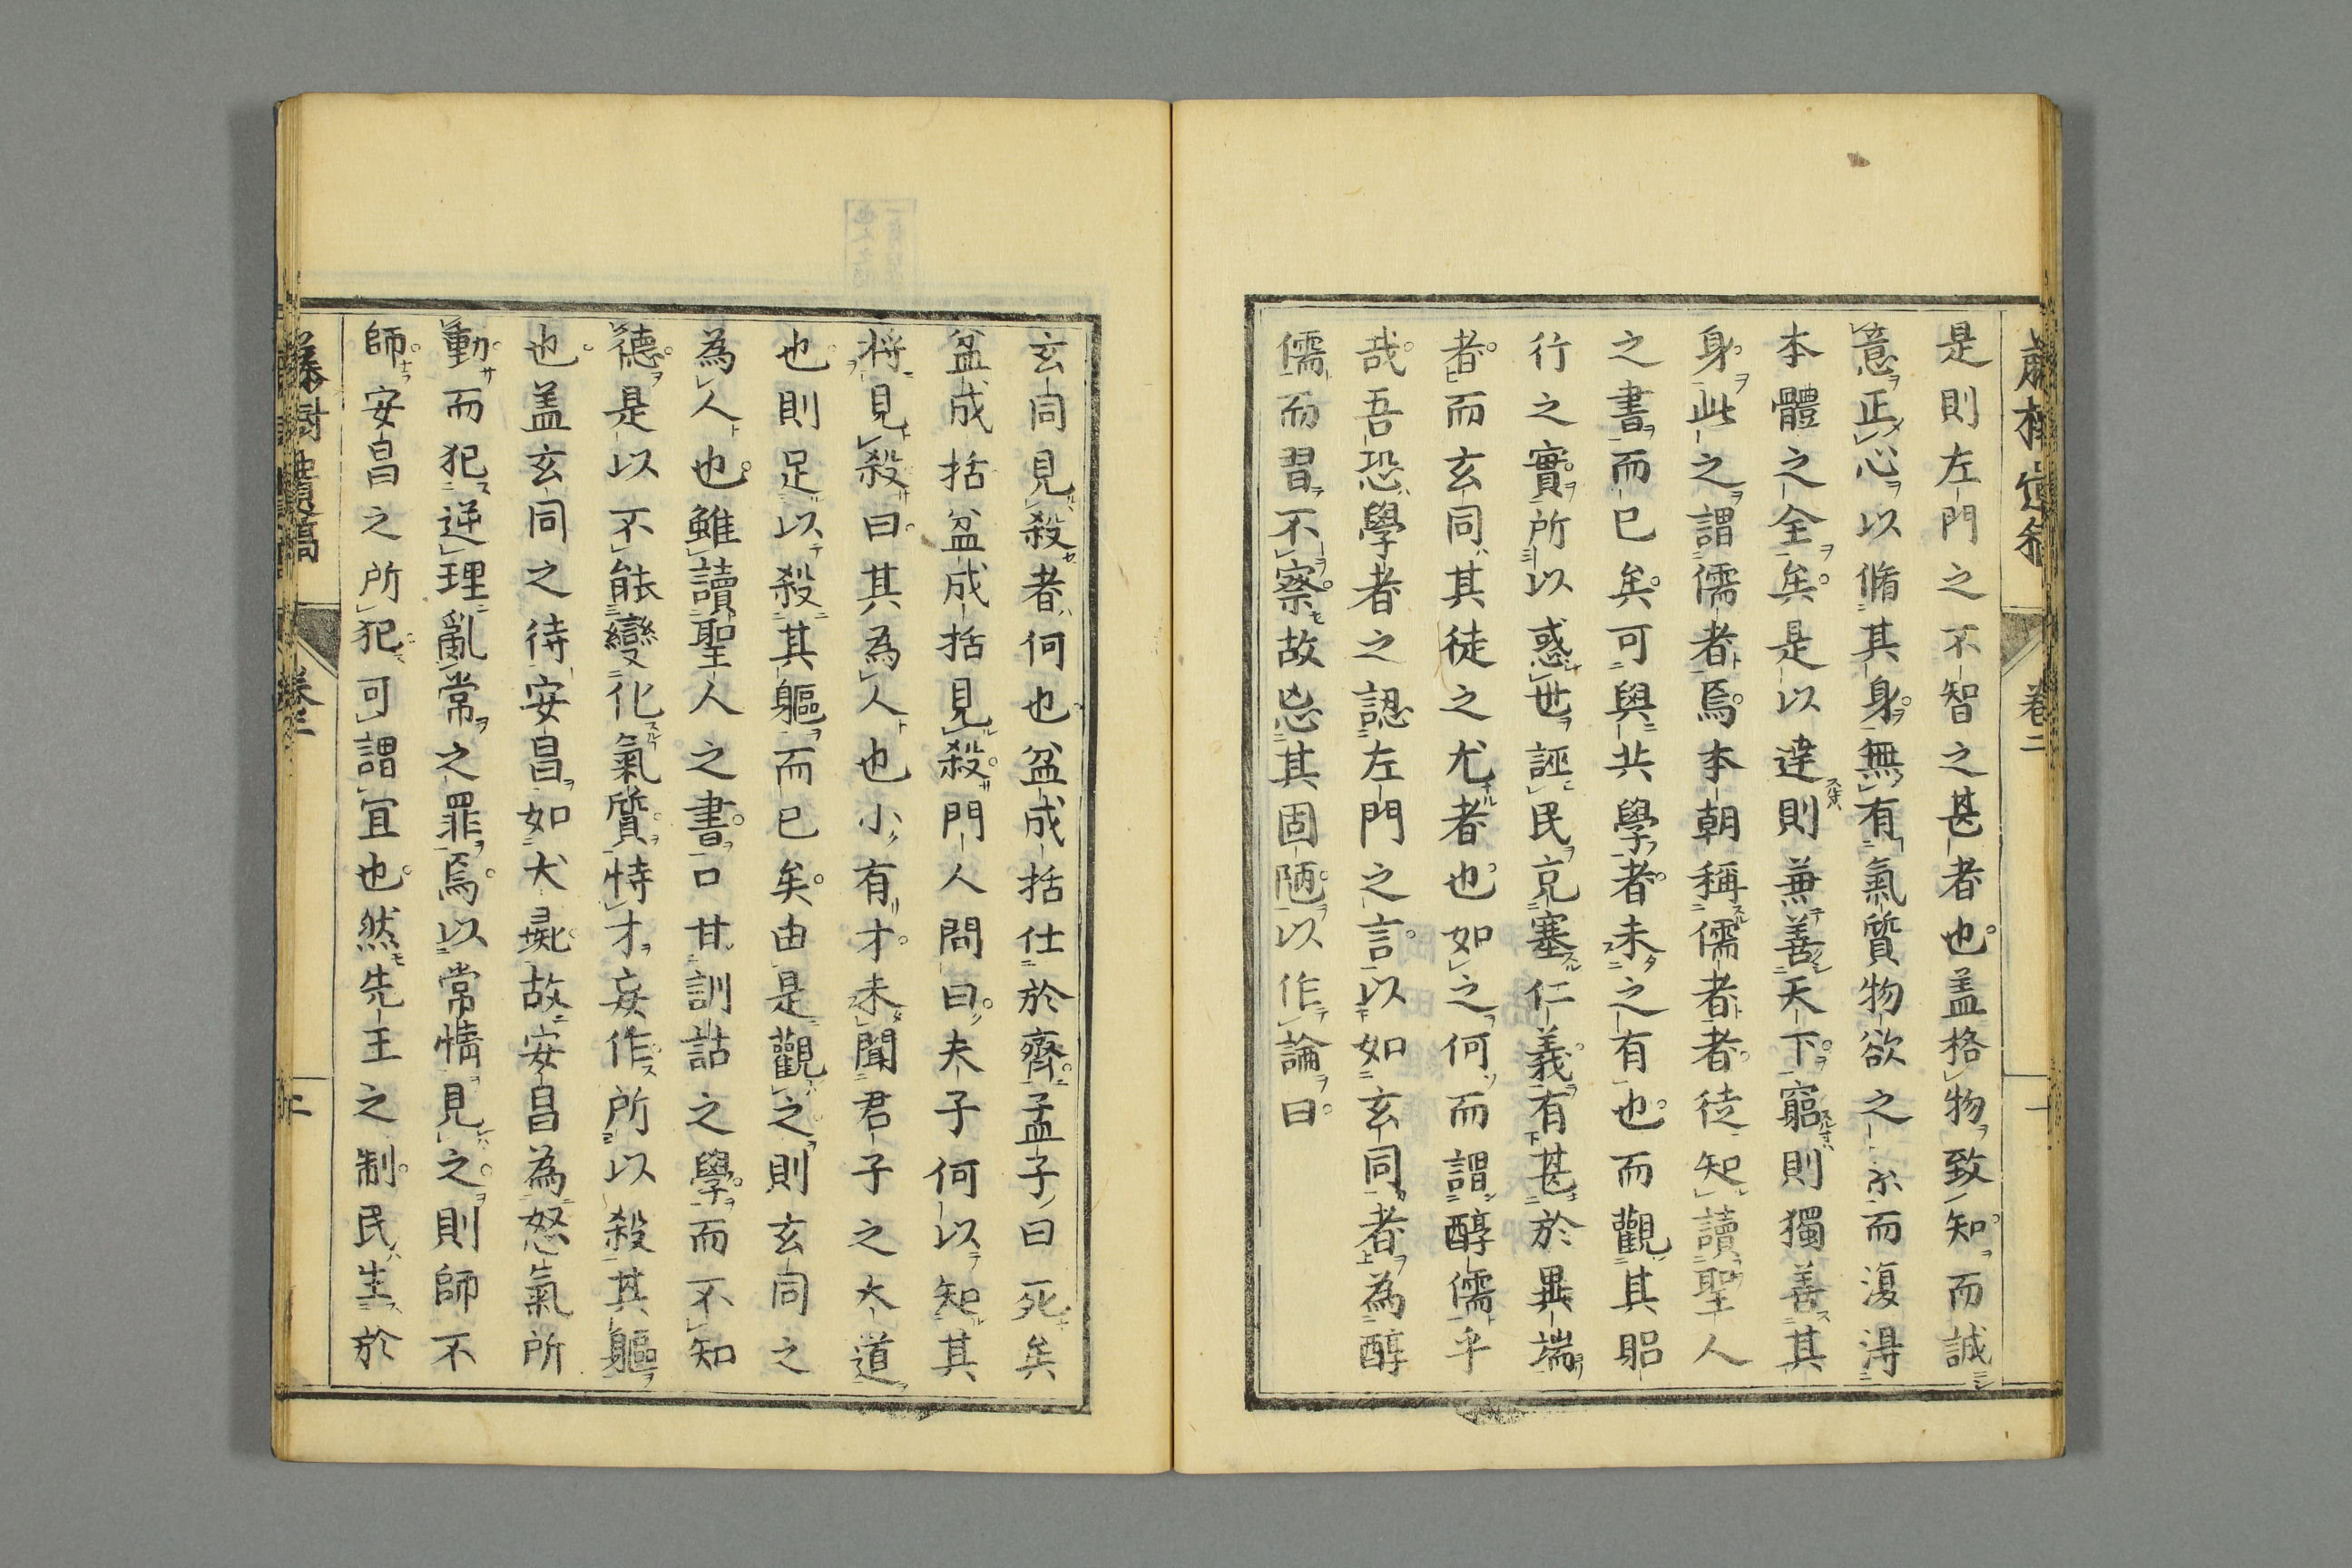 是則左門之不智之甚者也盖格物致知而誠
意正心以脩其身無有氣質物欲之而復得
本體之全矣是以達則兼善天下窮則獨善其
身此之謂儒者焉本朝稱儒者者徒知讀聖人
之書而已矣可與共學者未之有也而觀其躬
行之實所以惑世誣民充塞仁義有甚於異端
者而玄同其徒之尤者也如之何而謂醇儒乎
哉吾恐學者之認左門之言以如玄同者為醇
儒而習不察故忘其固陋以作論曰
玄同見殺者何也盆成括仕於齊孟子曰死矣
盆成括盆成括見殺門人問曰夫子何以知其
将見殺曰其為人也小有才未聞君子之大道
也則足以殺其軀而已矣由是觀之則玄同之
為人也雖讀聖人之書口甘訓詁之學而不知
德是以不能變化氣質恃才妄作所以殺其軀
也盖玄同之待安昌如犬彘故安昌為怒氣所
動而犯逆理亂常之罪焉以常情見之則師不
師安昌之所犯可謂宜也然先王之制民生於
卷二